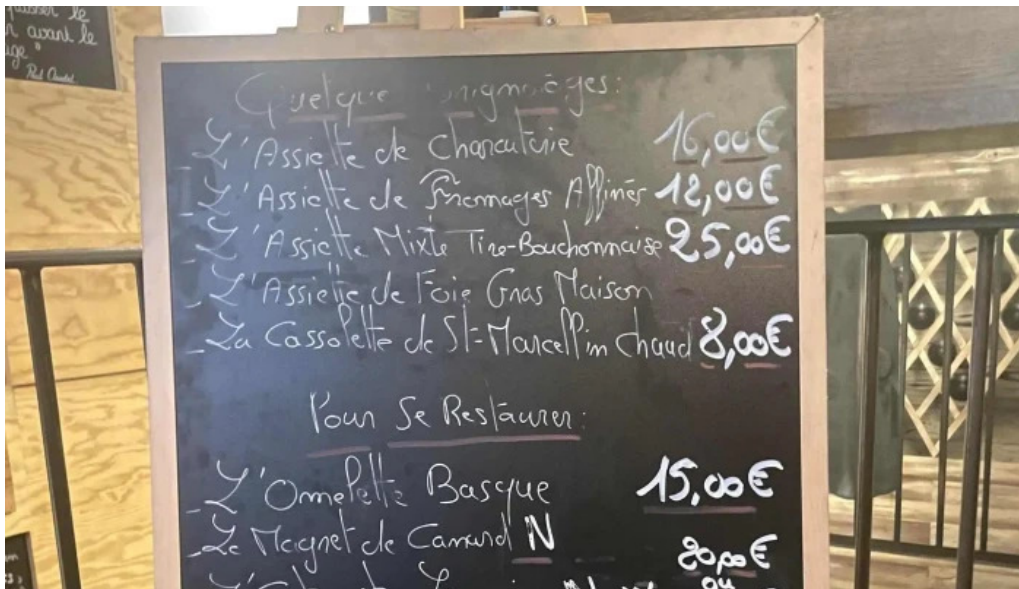 avant le
Paul Claudel
Quelque
L'Assiette de Charcuterie 16,00€
- L'Assiette de Fromages Affinés 12,00€
- L'Assiette Mixte Tire-Bouchonnaise 25,00€
- L'Assiette de Foie Gras Maison
- La Cassolette de St-Marcellin Chaud 8,00€
Pour Se Restaurer:
- L'Omelette Basque 15,00€
- Le Magret de Canard N 20,00€